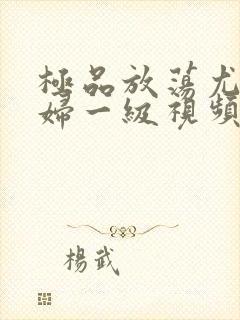 極品放蕩尤
婦一級視頻
楊武